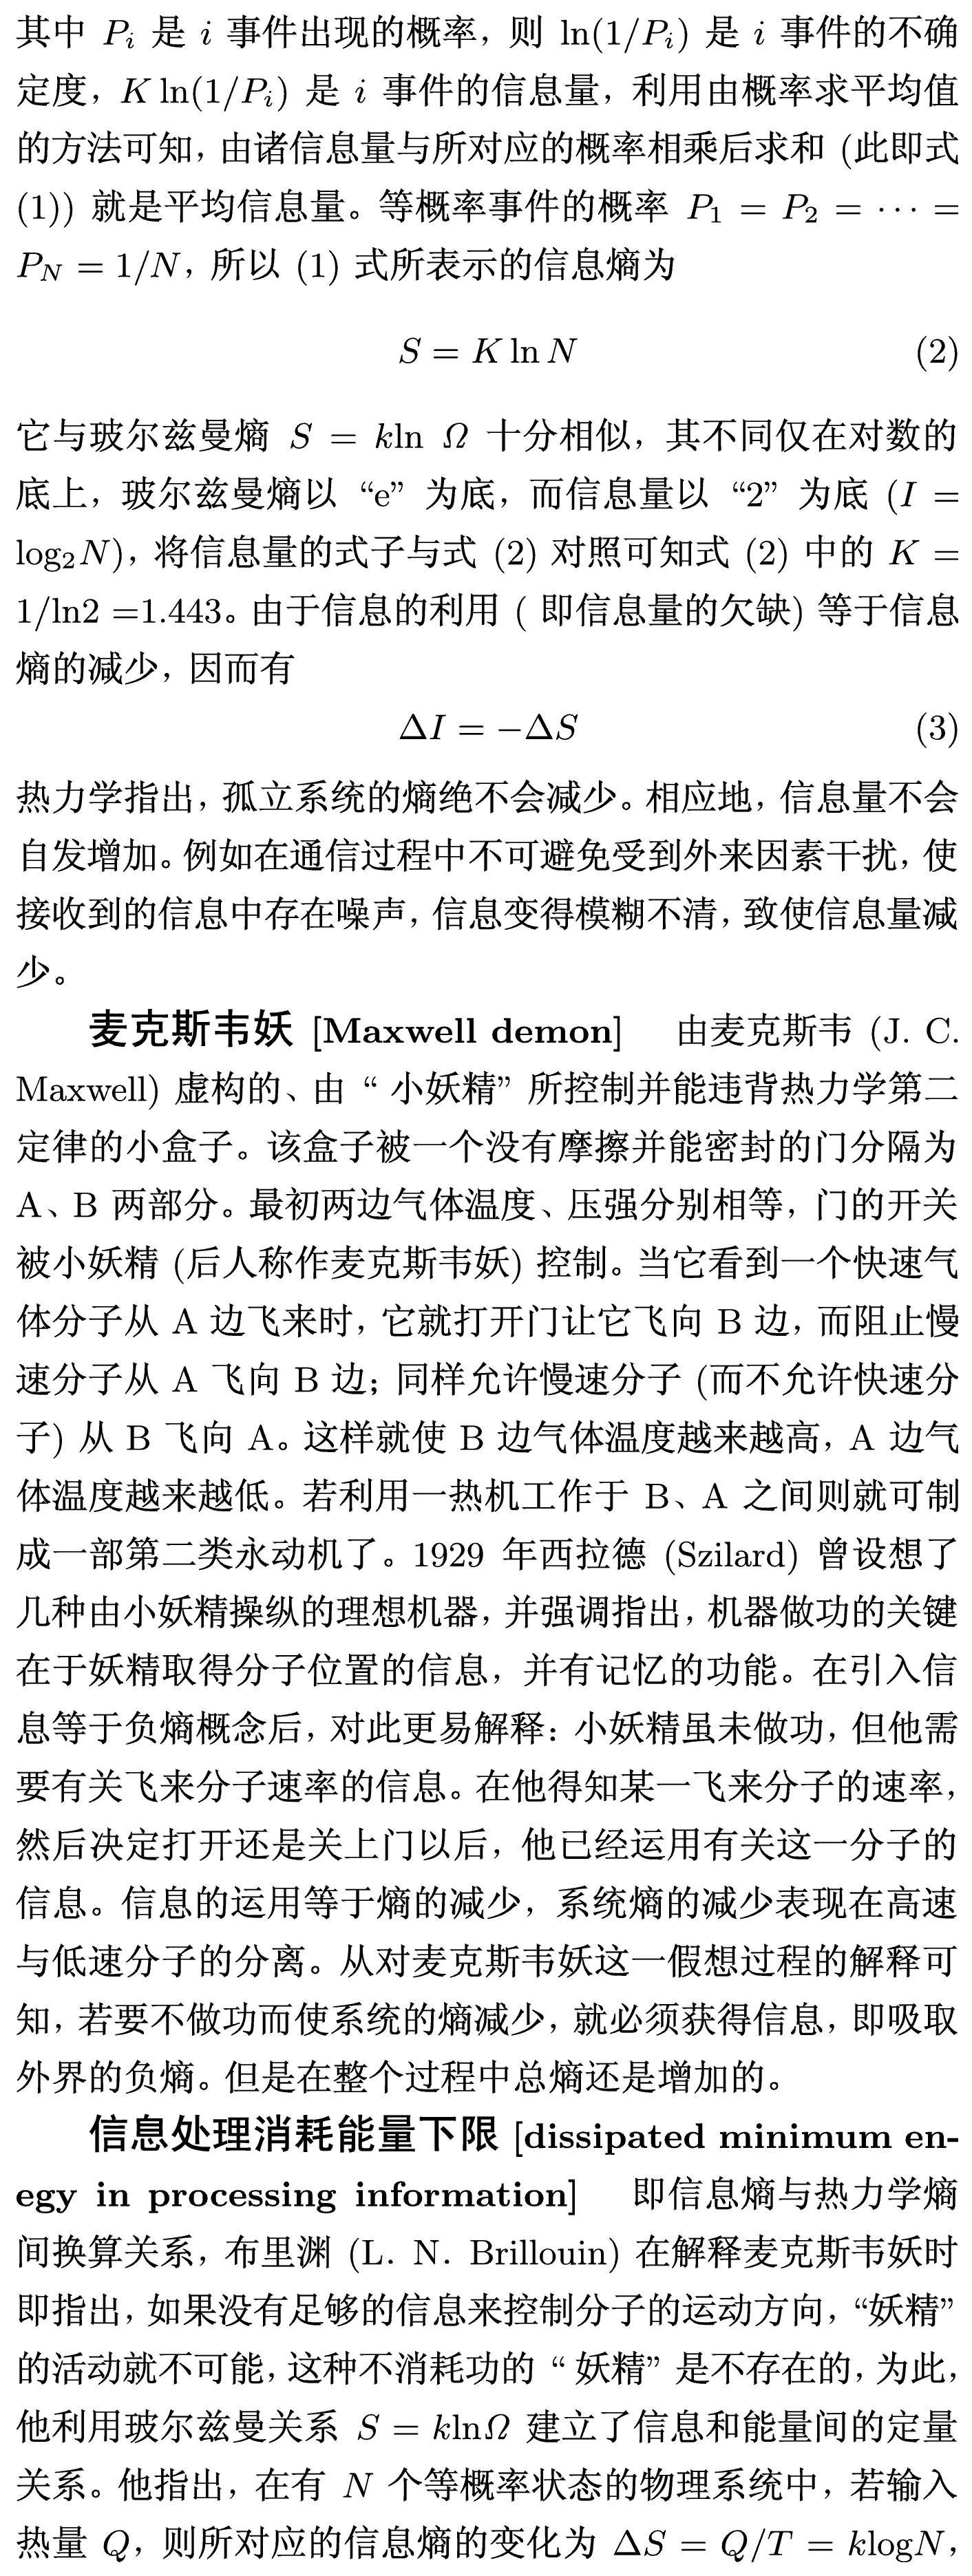 其中 Pᵢ 是 i 事件出现的概率，则 ln(1/Pᵢ) 是 i 事件的不确
定度，K ln(1/Pᵢ) 是 i 事件的信息量，利用由概率求平均值
的方法可知，由诸信息量与所对应的概率相乘后求和 (此即式
(1)) 就是平均信息量。等概率事件的概率 P₁ = P₂ = ··· =
P_N = 1/N，所以 (1) 式所表示的信息熵为
S = K ln N (2)
它与玻尔兹曼熵 S = kln Ω 十分相似，其不同仅在对数的
底上，玻尔兹曼熵以 “e” 为底，而信息量以 “2” 为底 (I =
log₂N)，将信息量的式子与式 (2) 对照可知式 (2) 中的 K =
1/ln2 =1.443。由于信息的利用 ( 即信息量的欠缺) 等于信息
熵的减少，因而有
ΔI = −ΔS (3)
热力学指出，孤立系统的熵绝不会减少。相应地，信息量不会
自发增加。例如在通信过程中不可避免受到外来因素干扰，使
接收到的信息中存在噪声，信息变得模糊不清，致使信息量减
少。
麦克斯韦妖 [Maxwell demon] 由麦克斯韦 (J. C.
Maxwell) 虚构的、由 “ 小妖精” 所控制并能违背热力学第二
定律的小盒子。该盒子被一个没有摩擦并能密封的门分隔为
A、B 两部分。最初两边气体温度、压强分别相等，门的开关
被小妖精 (后人称作麦克斯韦妖) 控制。当它看到一个快速气
体分子从 A 边飞来时，它就打开门让它飞向 B 边，而阻止慢
速分子从 A 飞向 B 边；同样允许慢速分子 (而不允许快速分
子) 从 B 飞向 A。这样就使 B 边气体温度越来越高，A 边气
体温度越来越低。若利用一热机工作于 B、A 之间则就可制
成一部第二类永动机了。1929 年西拉德 (Szilard) 曾设想了
几种由小妖精操纵的理想机器，并强调指出，机器做功的关键
在于妖精取得分子位置的信息，并有记忆的功能。在引入信
息等于负熵概念后，对此更易解释：小妖精虽未做功，但他需
要有关飞来分子速率的信息。在他得知某一飞来分子的速率，
然后决定打开还是关上门以后，他已经运用有关这一分子的
信息。信息的运用等于熵的减少，系统熵的减少表现在高速
与低速分子的分离。从对麦克斯韦妖这一假想过程的解释可
知，若要不做功而使系统的熵减少，就必须获得信息，即吸取
外界的负熵。但是在整个过程中总熵还是增加的。
信息处理消耗能量下限 [dissipated minimum en-
egy in processing information] 即信息熵与热力学熵
间换算关系，布里渊 (L. N. Brillouin) 在解释麦克斯韦妖时
即指出，如果没有足够的信息来控制分子的运动方向，“妖精”
的活动就不可能，这种不消耗功的 “ 妖精” 是不存在的，为此，
他利用玻尔兹曼关系 S = klnΩ 建立了信息和能量间的定量
关系。他指出，在有 N 个等概率状态的物理系统中，若输入
热量 Q，则所对应的信息熵的变化为 ΔS = Q/T = klogN，